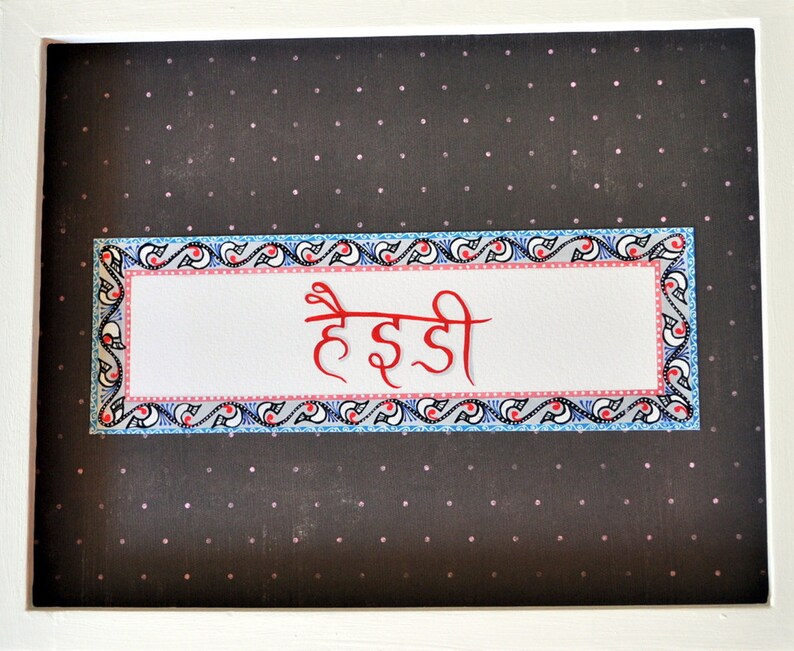 हैइडी